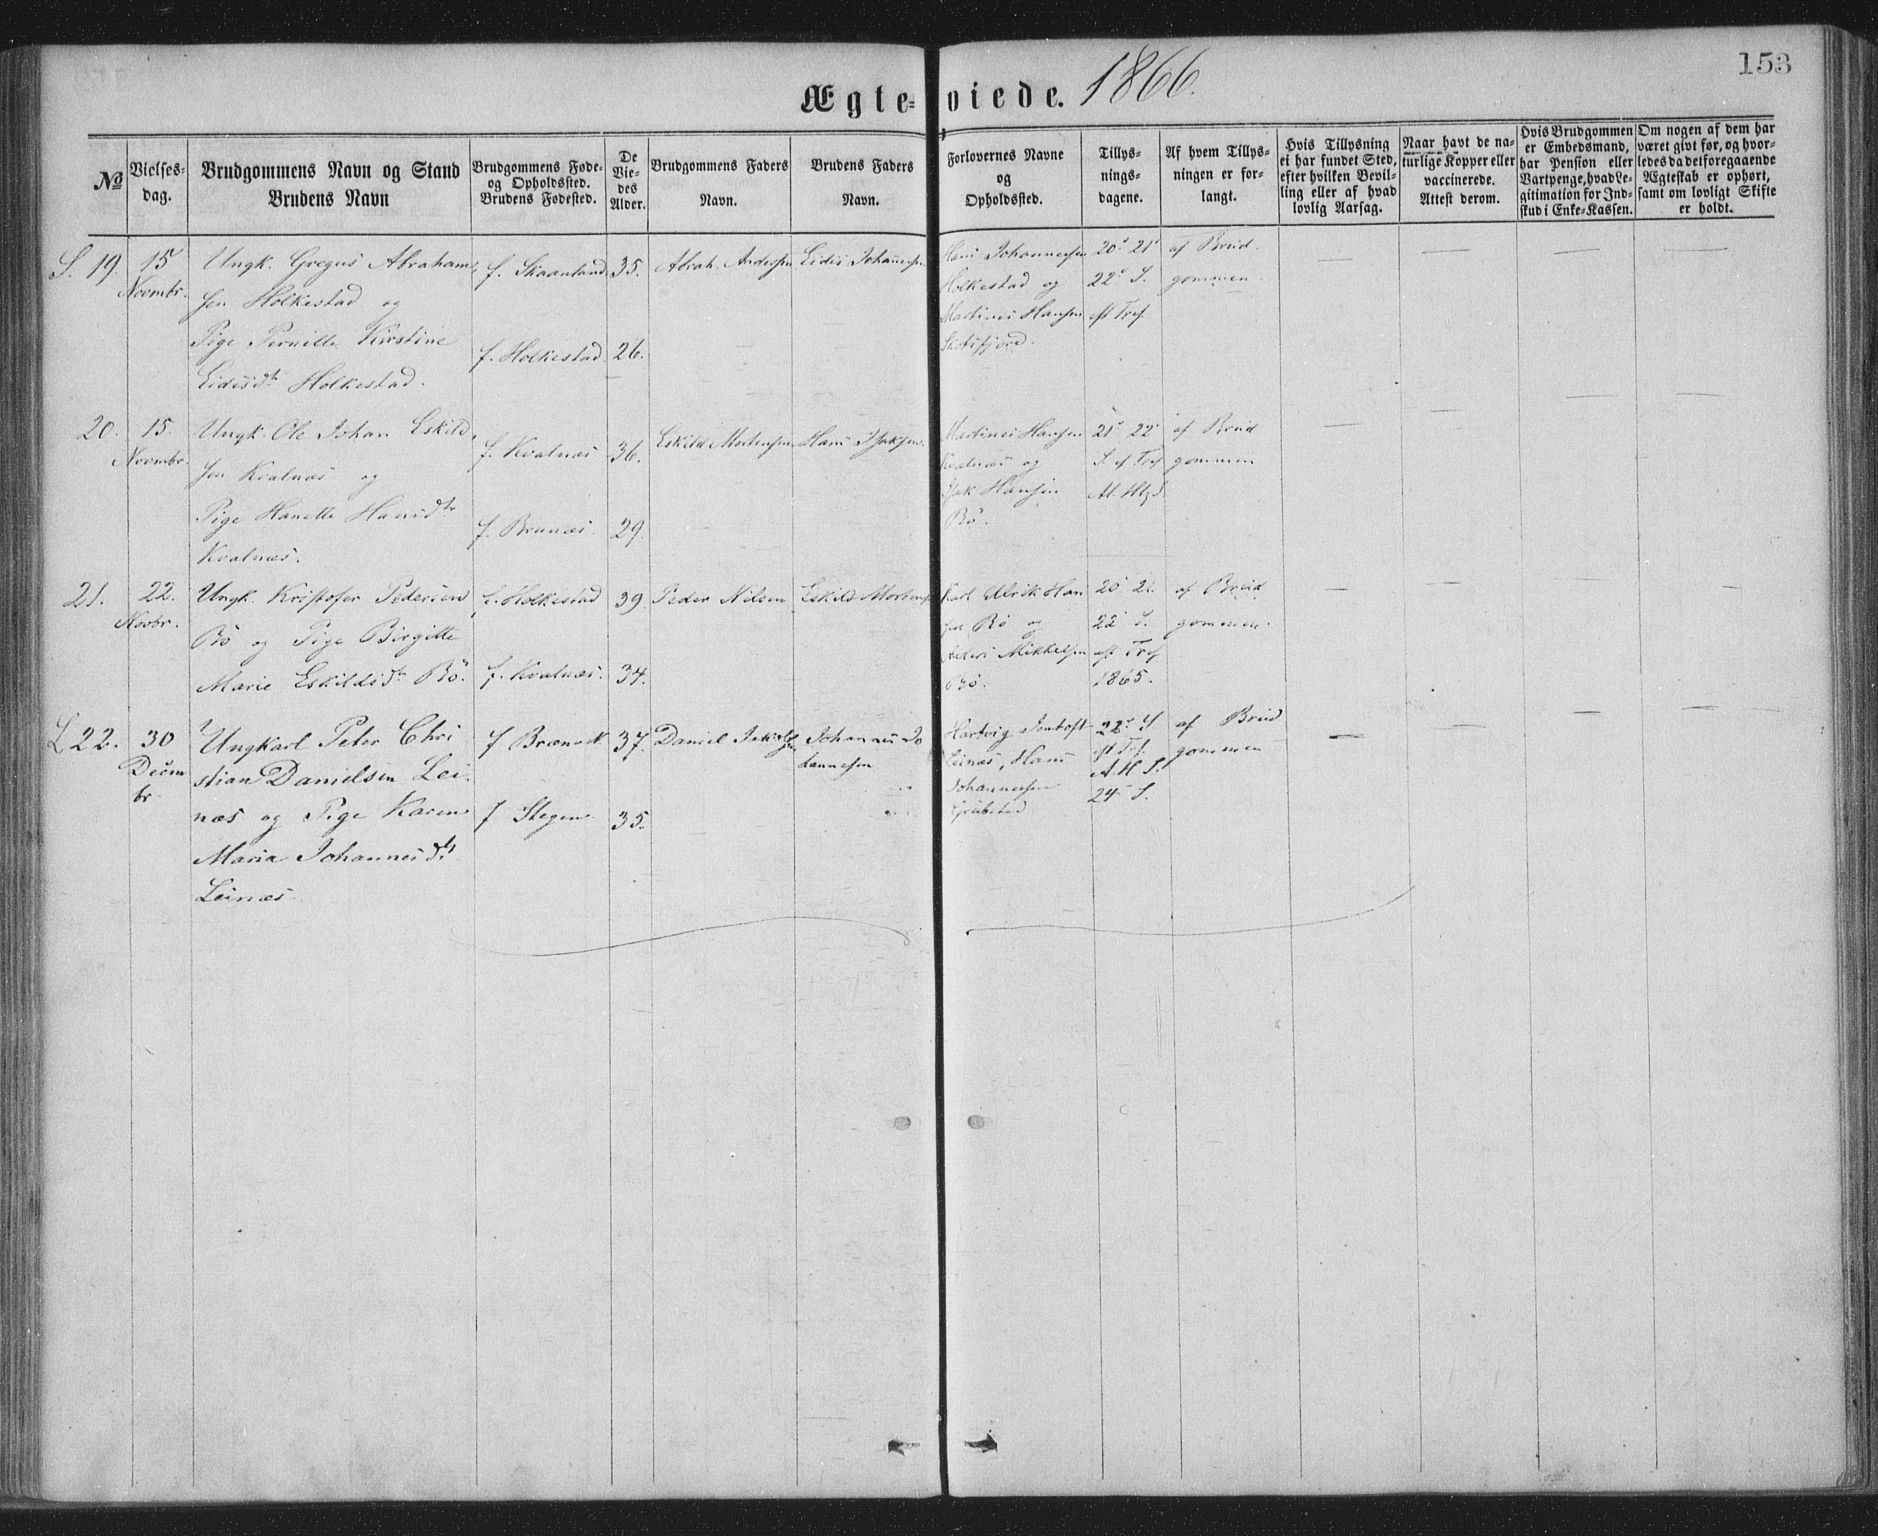 153
Ægte-viede. 1866.
№
Vielses-
dag.
Brudgommens Navn og Stand
Brudens Navn
Brudgommens Føde-
og Opholdssted.
Brudens Fødested.
De
Vie-
des
Alder.
Brudgommens Faders
Navn.
Brudens Faders
Navn.
Forlovernes Navne
og
Opholdssted.
Tillys-
nings-
dagene.
Af hvem Tillys-
ningen er for-
langt.
Hvis Tillysning
ei har fundet Sted,
efter hvilken Bevil-
ling eller af hvad
lovlig Aarsag.
Naar havt de na-
turlige Kopper eller
vaccinerede.
Attest derom.
Hvis Brudgommen
er Embedsmand,
har Pension eller
Vartpenge, hvad Le-
gitimation for Ind-
skud i Enke-Kassen.
Om nogen af dem har
været givt før, og hvor-
ledes da det foregaaende
Ægteskab er ophørt,
samt om lovligt Skifte
er holdt.
S. 19
15
Novmbr.
Ungk. Gregus Abraham
sen Holkestad og
Pige Pernille Kirstine
Eidisdtr Holkestad.
f. Skaanland
f. Holkestad
35.
26.
Abrah. Andersen
Eidis Johannesen
Hans Johannesen
Holkestad og
Martines Hansen
20. 21
22. S.
eft Tref
af Brud
gommen
20.
15.
Novmbr.
Ungk. Ole Johan Eskild
sen Kvalnæs og
Pige Hanette Hansdtr
Kvalnæs.
f. Kvalnæs
f. Brunæs
36.
29.
Eskild Mortensen
Hans Isaksen
Martines Hansen
Kvalnæs og
Isak Hansen
Bö.
21 22
S. ef Tref
Al. Hlgd.
af Brud
gommen
21.
22.
Novbr.
Ungk. Kristofer Pedersen
Bö og Pige Birgitte
Marie Eskildsdtr Bö.
f. Holkestad
f. Kvalnæs.
39
34.
Peder Nilsen
Eskild Mortensen
Karl Ulrik Han
sen Bö og
Anders Mikkelsen
Bö.
20 21.
22 S.
eft Tref
1865.
af Brud
gommen.
L 22.
30
Decem
br.
Ungkarl Peter Chri
stian Danielsen Lei
næs og Pige Karen
Maria Johannesdtr
Leinæs
f
f Stegen
37.
35.
Daniel
Johannes Jo
hannesen
Hartvig
Leinæs, Hans
Johannesen
Grübstad
22. S
eft Tref.
A H S.
24 S.
af Brud
gommen